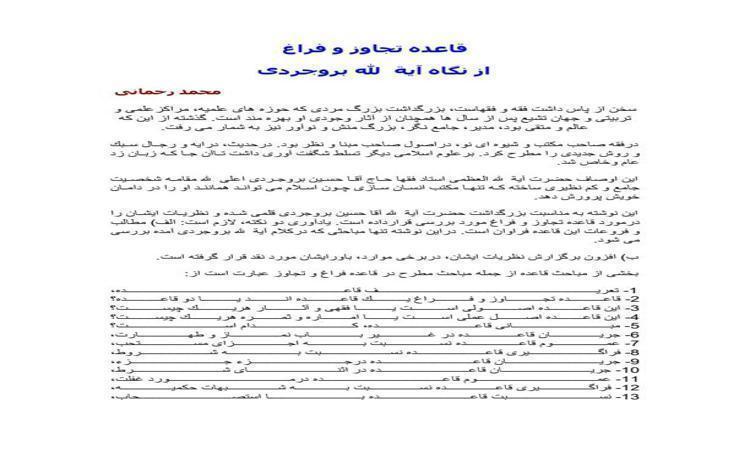 قاعده تجاوز و فراغ
از نگاه آیة الله بروجردی
محمد رحمانی
سخن از پاس داشت فقه و فقهاست، بزرگداشت بزرگ مردی که حوزه های علمیه، مراکز علمی و
تربیتی و جهان تشیع پس از سال ها همچنان از آثار وجودی او بهره مند است. گذشته از این که
عالم و متقی بود، مدیر، جامع نگر، بزرگ منش و نوآور نیز به شمار می رفت.
درفقه صاحب مکتب و شیوه ای نو، دراصول صاحب مبنا و نظر بود. درحدیث، درایه و رجال سبك
و روش جدیدی را مطرح کرد. برعلوم اسلامی دیگر تسلط شگفت آوری داشت تاآن جا که زبان زد
عام وخاص شد.
این اوصاف حضرت آیة الله العظمی استاد فقها حاج آقا حسین بروجردی اعلی الله مقامه شخصیت
جامع و کم نظیری ساخته که تنها مکتب انسان سازی چون اسلام می تواند همانند او را در دامان
خویش پرورش دهد.
این نوشته به مناسبت بزرگداشت حضرت آیة الله آقا حسین بروجردی قلمی شده و نظریات ایشان را
درمورد قاعده تجاوز و فراغ مورد بررسی قرارداده است. یادآوری دو نکته، لازم است: الف) مطالب
و فروعات این قاعده فراوان است. دراین نوشته تنها مباحثی که درکلام آیة الله بروجردی آمده بررسی
می شود.
ب) افزون برگزارش نظریات ایشان، دربرخی موارد، باورایشان مورد نقد قرار گرفته است.
بخشی از مباحث قاعده از جمله مباحث مطرح در قاعده فراغ و تجاوز عبارت است از:
1- تعریف قاعده،
2- قاعده تجاوز و فراغ یك قاعده اند یا دو قاعده؟
3- این قاعده اصولی است یا فقهی و آثار هریك چیست؟
4- این قاعده اصل عملی است یا اماره و ثمره هریك چیست؟
5- مبانی قاعده، کدام است؟
6- جریان قاعده در غیر باب نماز و طهارت،
7- عموم قاعده نسبت به اجزای مستحب،
8- فراگیری قاعده نسبت به شروط،
9- جریان قاعده درجزء جزء،
10- جریان قاعده در اثنای شرط،
11- عموم قاعده درمورد غفلت،
12- فراگیری قاعده نسبت به شبهات حکمیه،
13- نسبت قاعده با استصحاب،